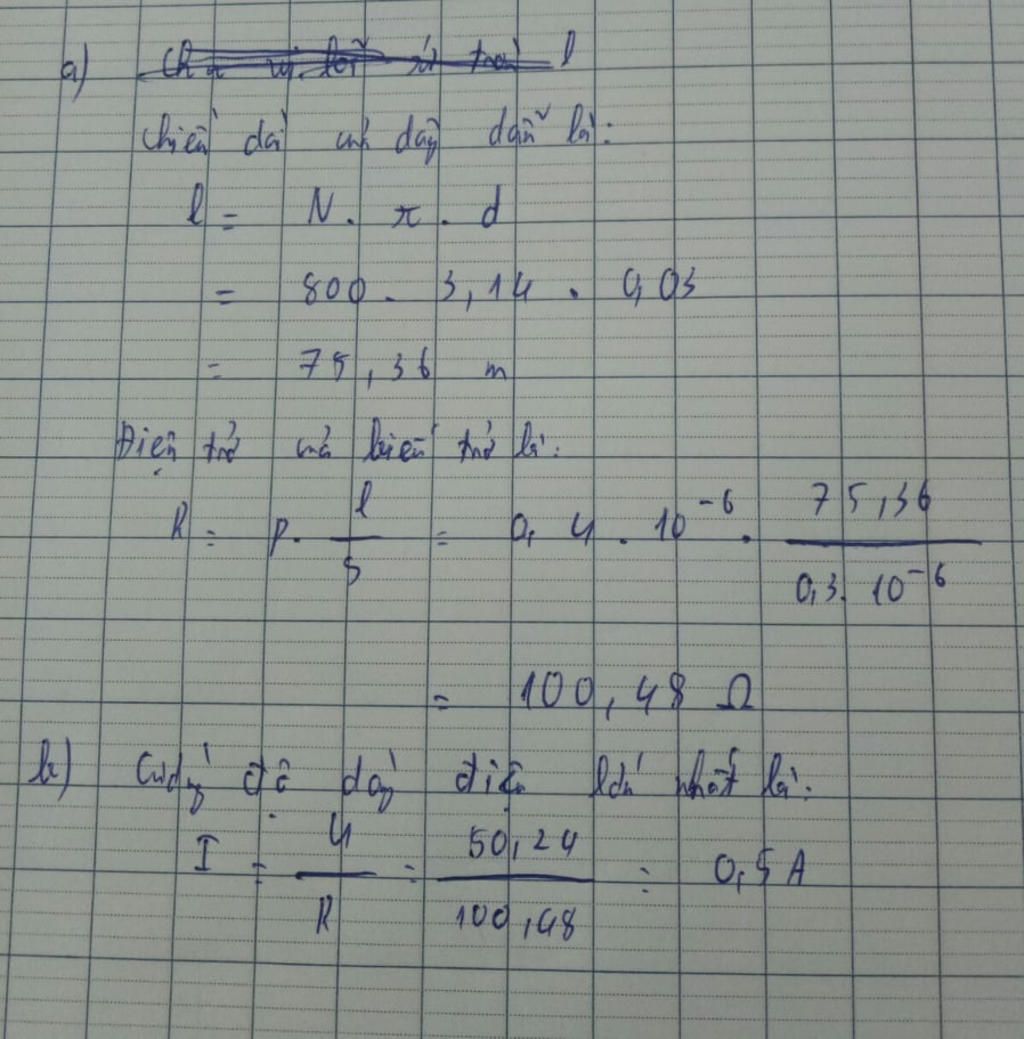 a) l
Chiều dài của dây dẫn là:
l = N . π . d
= 800 . 3,14 . 0,03
= 75,36 m
Điện trở của biến trở là:
R = ρ . l / S = 0,4 . 10⁻⁶ . 75,36 / 0,3 . 10⁻⁶
= 100,48 Ω
b) Cường độ dòng điện lớn nhất là:
I = U / R = 50,24 / 100,48 = 0,5 A